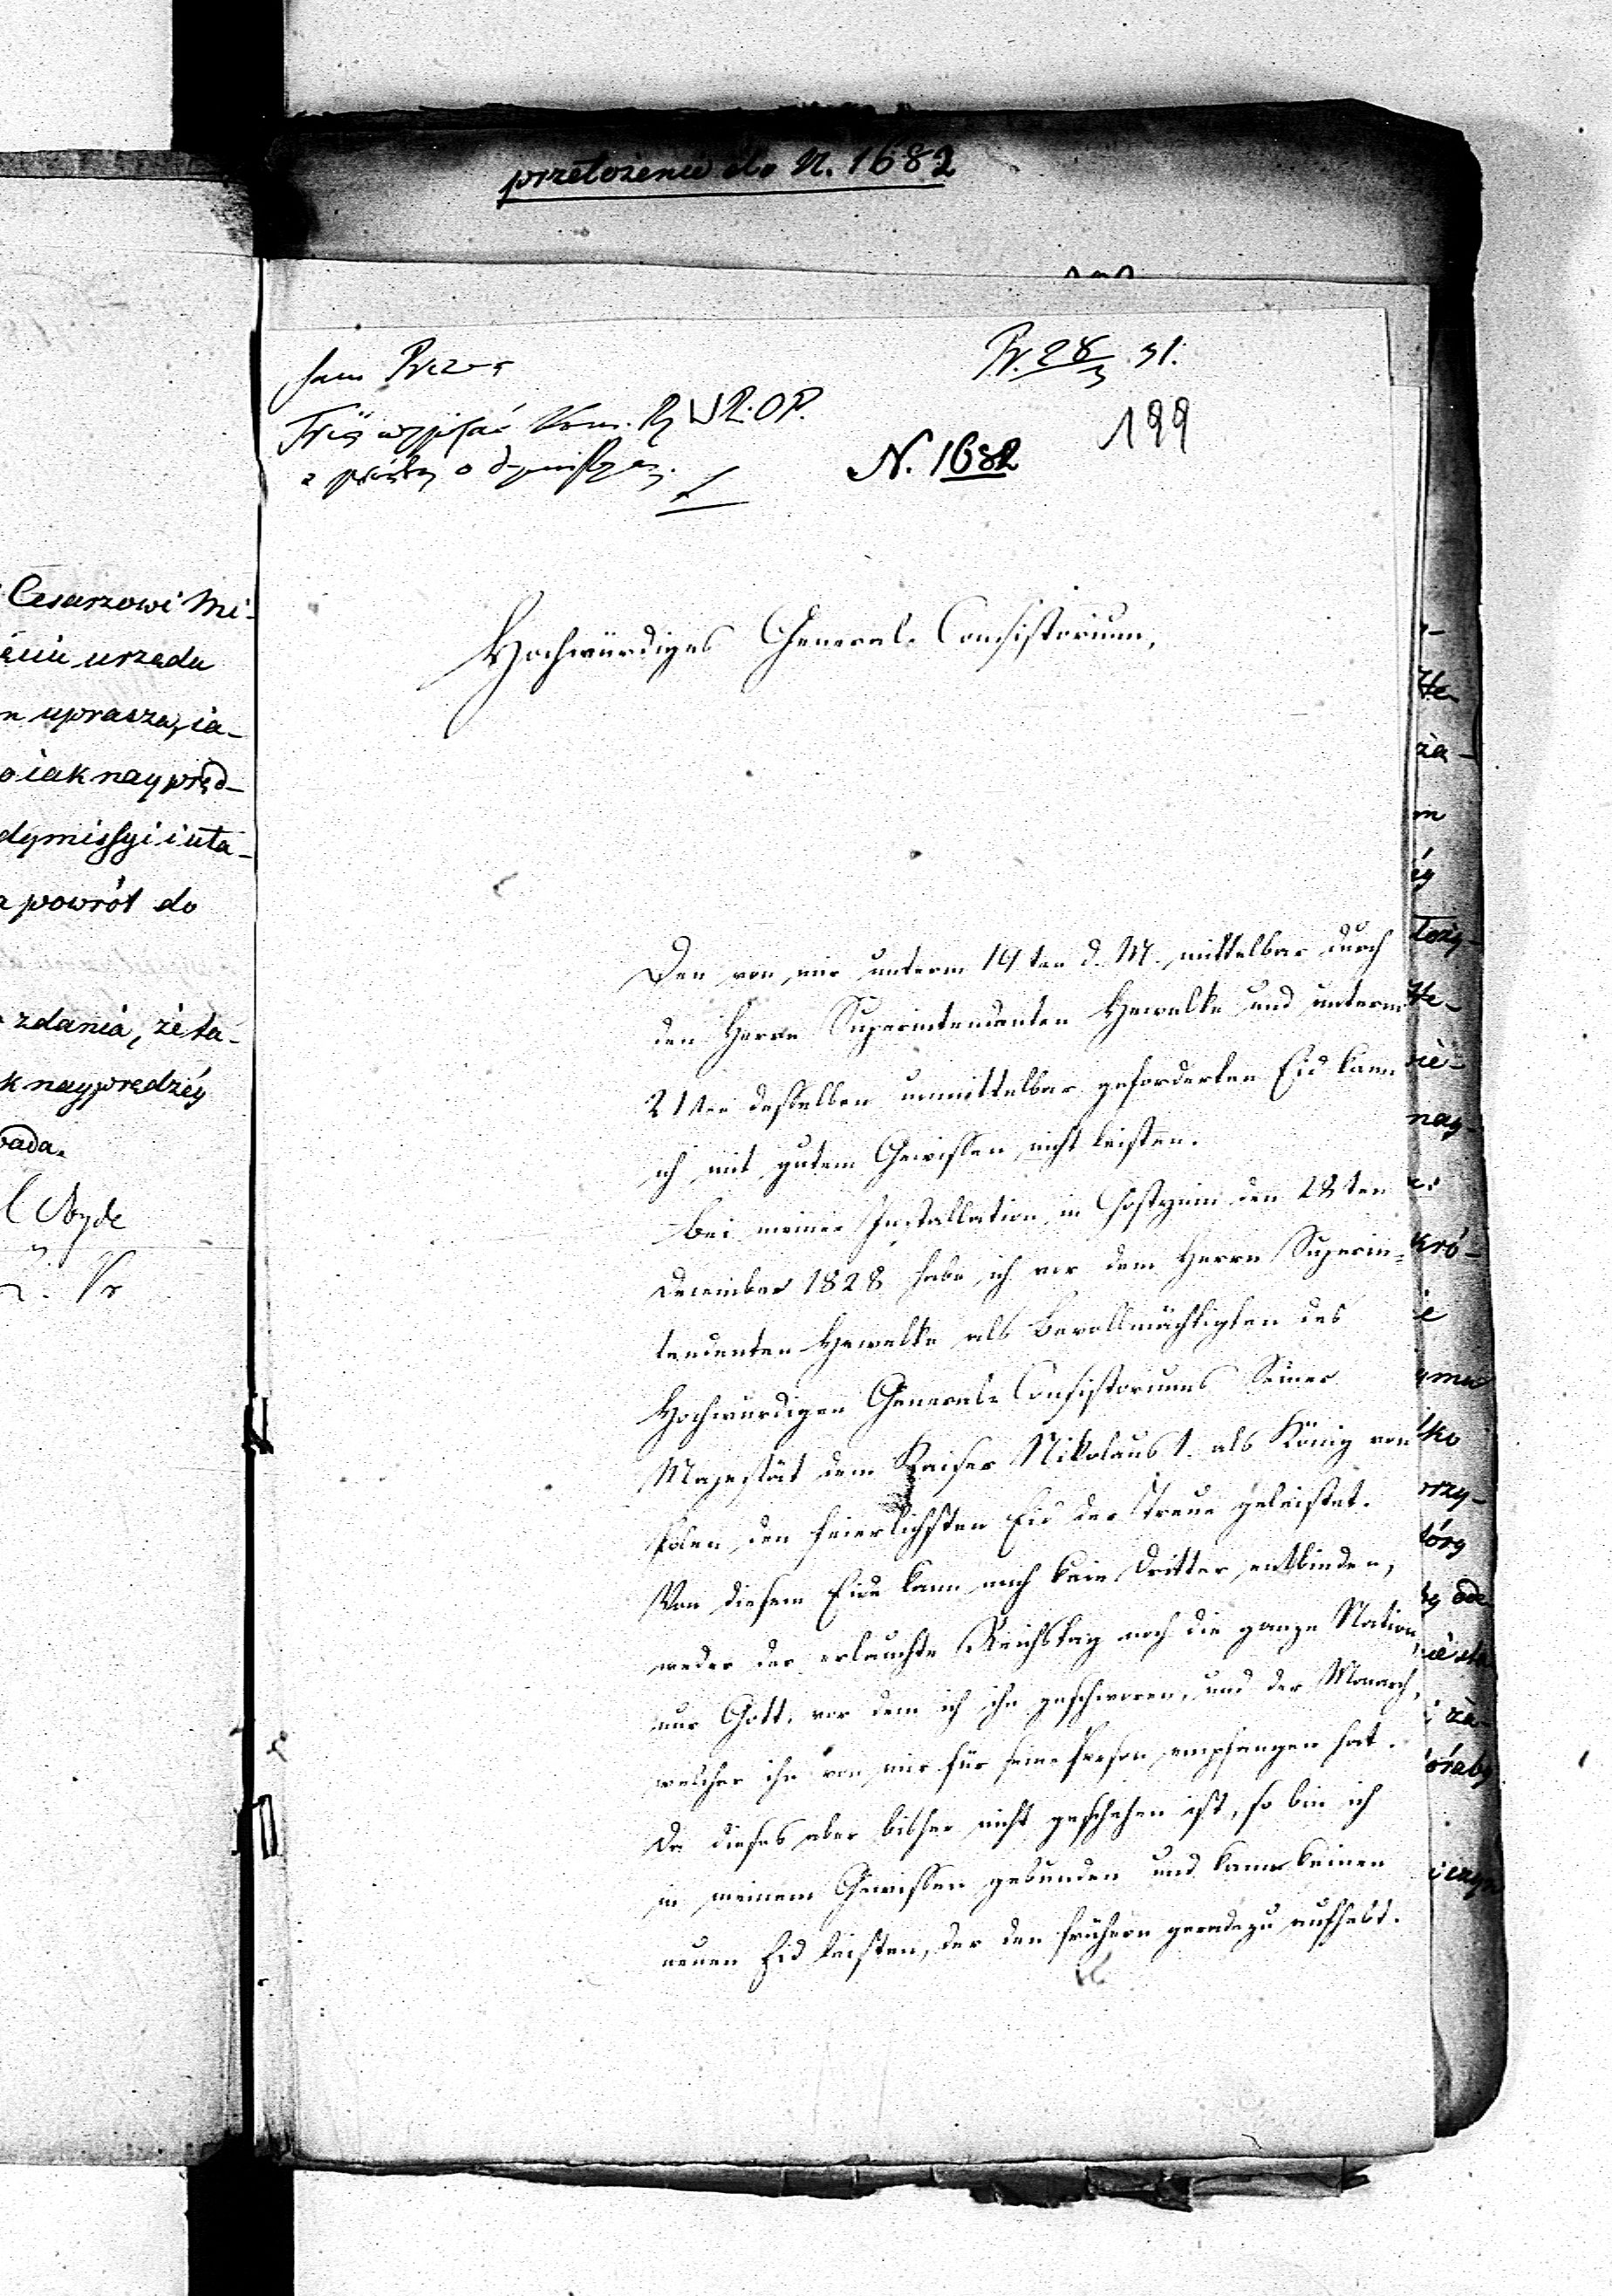 przełożenie do N. 1682
Pr. 28/3 31.
199
N. 1682
Treść wypisać Kom. Rz. W.R.i O.P.
z prośbą o dymissyą.
Cesarzowi Mi-
urzędu
uprasza, ia-
iak naypręd-
dymissyi i uła-
powrót do
zdania, że ta-
k nayprędzéy
Hochwürdiges General-Consistorium,
Den von mir unterm 19ten d. M. mittelbar durch
den Herrn Superintendenten Hewelke und unterm
21ten desselben unmittelbar geforderten Eid kann
ich mit gutem Gewissen nicht leisten.
Bei meiner Installation in Gostynin den 28ten
December 1828 habe ich vor dem Herrn Superin-
tendenten Hewelke als Bevollmächtigten des
Hochwürdigen General-Consistoriums Seiner
Majestät dem Kaiser Nikolaus I. als König von
Polen den feierlichsten Eid der Treue geleistet.
Von diesem Eide kann mich kein Dritter entbinden,
weder der erlauchte Reichstag noch die ganze Nation,
nur Gott, vor dem ich ihn geschworen, und der Monarch,
welcher ihn von mir für seine Person empfangen hat.
Da dieses aber bisher nicht geschehen ist, so bin ich
in meinem Gewissen gebunden und kann keinen
neuen Eid leisten, der den frühern geradezu aufhebt.